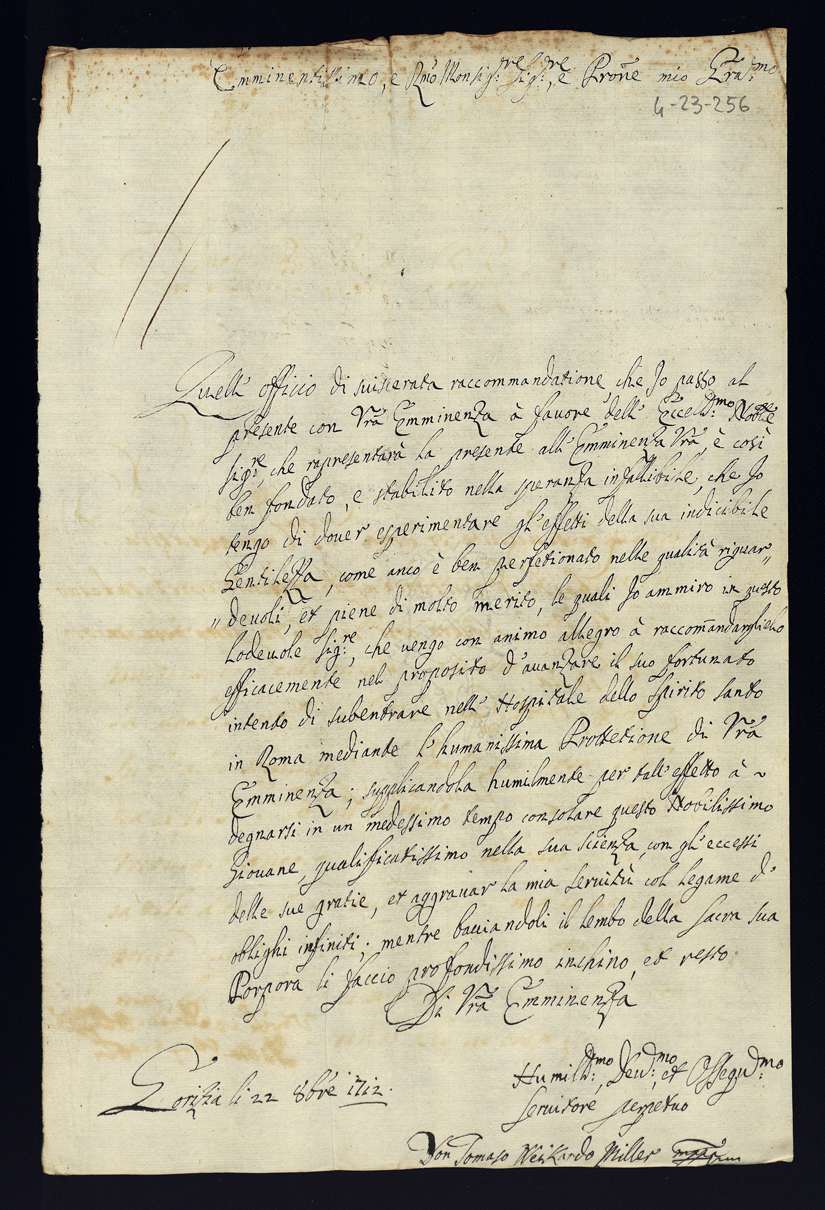 Emminentissimo, e Rmo Monsig:re Sig:re, e Prone mio Gra:mo
4-23-256
Quell' officio di suiscerata raccommandatione che Jo passo al
presente con Vrã Emminenza à fauore dell' Eccell:mo Nobile
Sig:re, che rapresentarà la presente all' Emminenza Vrã, è così
ben fondato, e stabilito nella speranza infallibile, che Jo
tengo di douer esperimentare gl' effetti della sua indicibile
Gentilezza, come anco è ben perfetionato nelle qualità riguar„
„deuoli, et piene di molto merito, le quali Jo ammiro in questo
Lodeuole Sig:re, che uengo con animo allegro à raccom̃andarglielo
efficacemente nel proposito d' auanzare il suo fortunato
intento di subentrare nell' Hospitale dello Spirito Santo
in Roma mediante l' humanissima Prottetione di Vrã
Emminenza; supplicandola humilmente per tall' effetto à ~
degnarsi in un medessimo tempo consolare questo Nobilissimo
Giouane, qualificatissimo nella sua scienza, con gl' eccessi
delle sue gratie, et aggrauar la mia seruitù col legame d'
oblighi infiniti; mentre bacciandoli il lembo della sacra sua
Porpora li faccio profondissimo inchino, et resto
Di Vrã Emminenza
Humill:mo, Deu:mo, et Ossequ:mo
seruitore perpetuo
Gorizia li 22 8bre 1712.
Don Tomaso Weikardo Miller